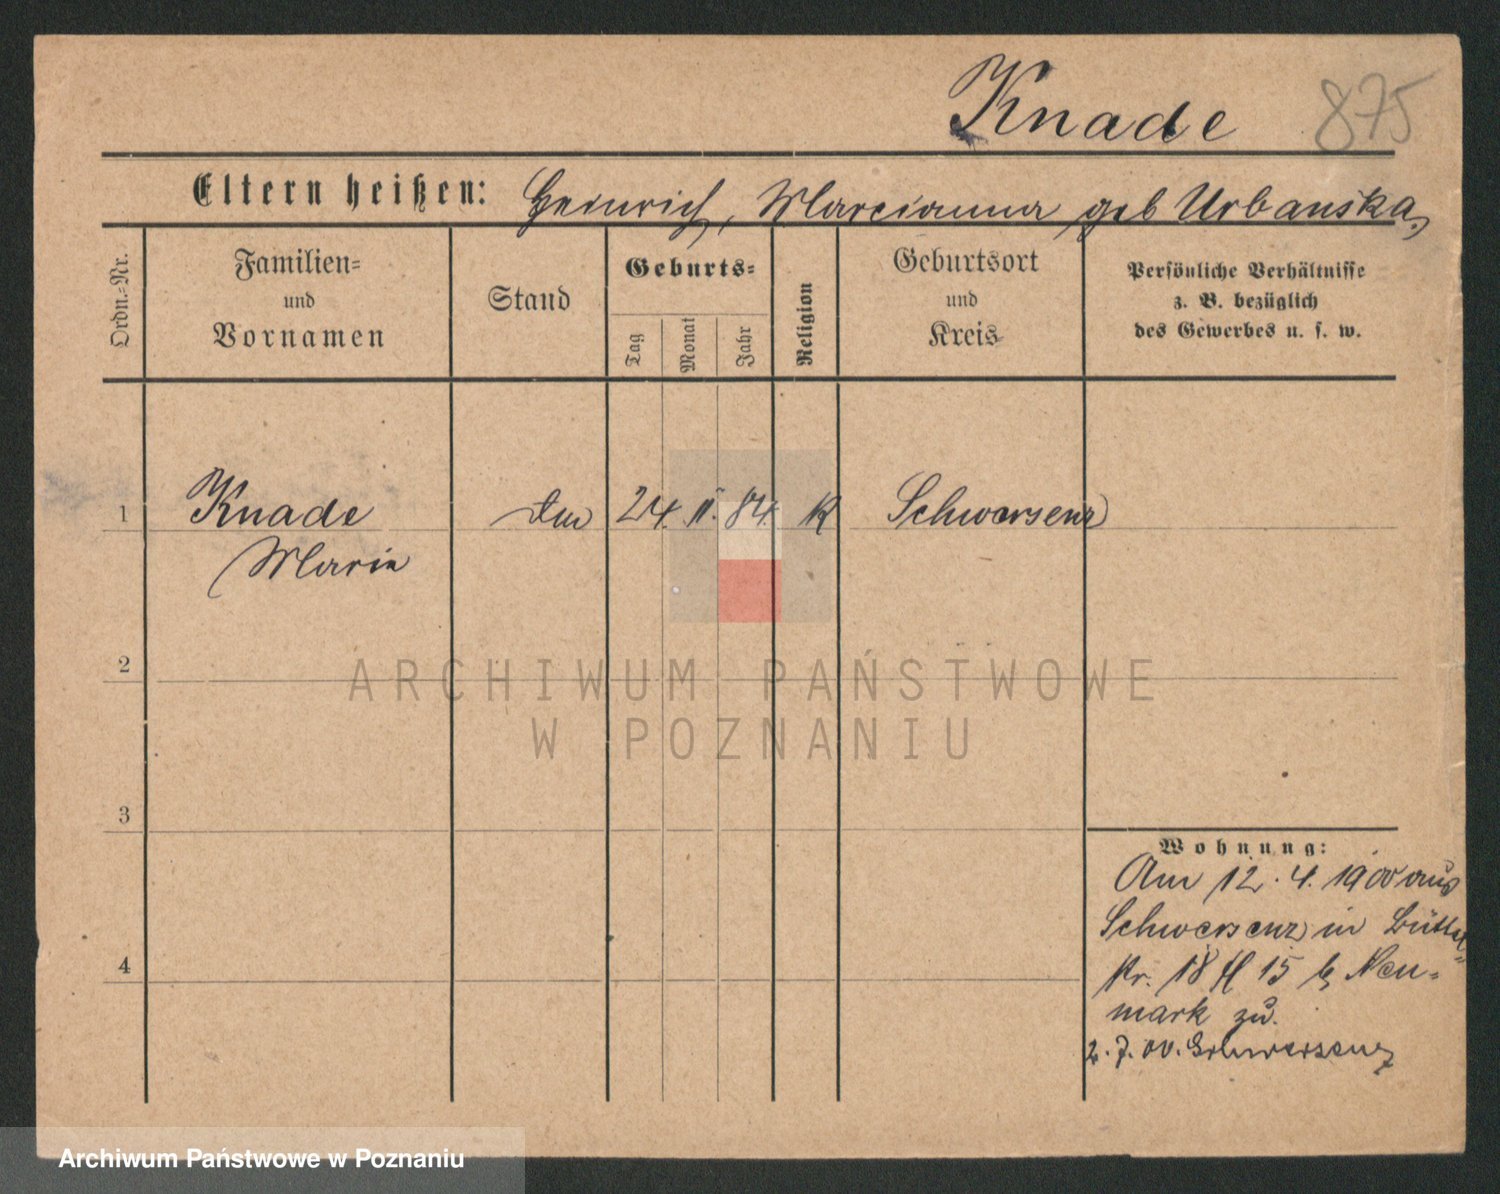 Knade 875
Eltern heißen: Heinrich, Marcianna geb Urbanska
Ordn.-Nr.
Familien-
und
Vornamen
Stand
Geburts-
Tag
Monat
Jahr
Religion
Geburtsort
und
Kreis
Persönliche Verhältnisse
z. B. bezüglich
des Gewerbes u. s. w.
1 Knade 24. II. 84. K Schwersenz
Marie
2
3
4
Wohnung:
Am 12. 4. 1900 aus
Schwersenz in
Nr. 18 15 b Neu-
mark zu.
2. 7. 00. Schwersenz
ARCHIWUM PAŃSTWOWE
W POZNANIU
Archiwum Państwowe w Poznaniu